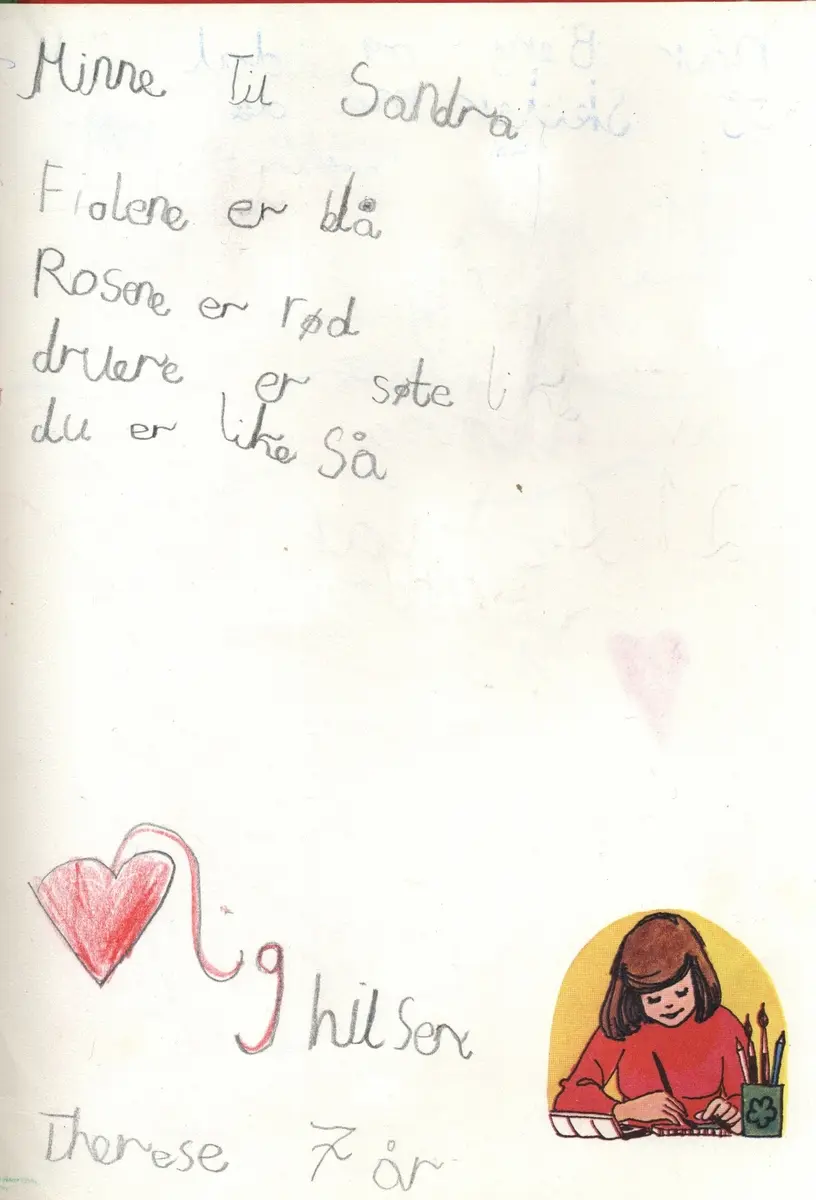 Minne Til Sandra
Fiolene er blå
Rosene er rød
druene er søte li
du er like Så
lig
hilsen
Therese 7 år